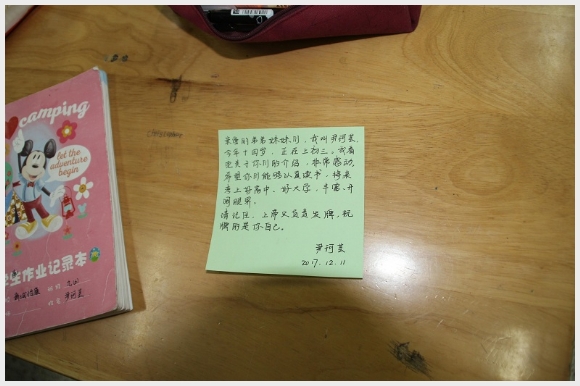 camping
let the
adventure
begin
生作业记录本
亲爱的弟弟妹妹们，我叫尹珂芝，
今年十四岁，正在上初三。我看
完关于你们的介绍，非常感动，
希望你们能够认真读书，将来
考上好高中，好大学，丰富、开
阔眼界。
请记住，上帝只负责发牌，玩
牌的是你自己。
尹珂芝
2017.12.11